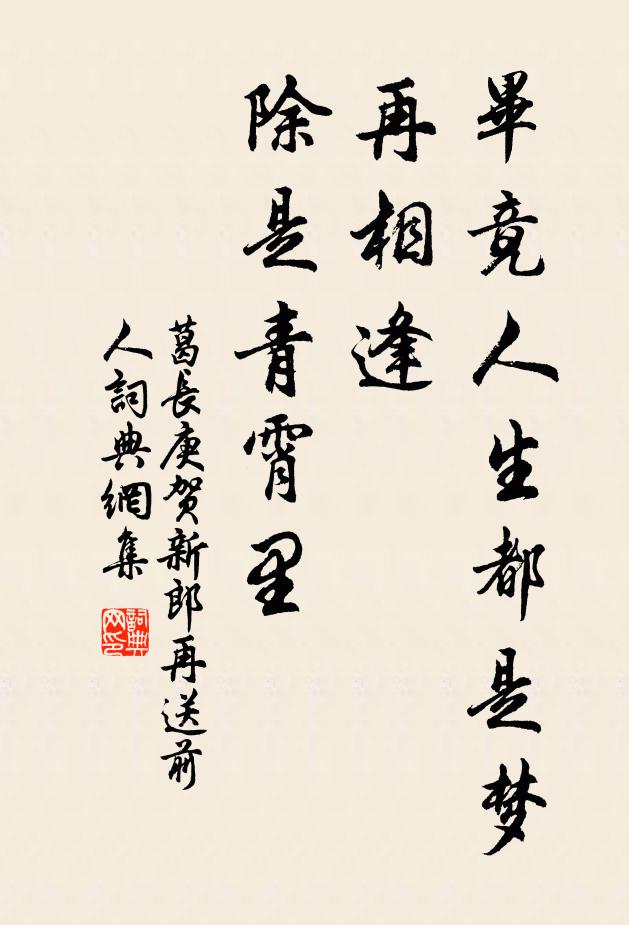 畢竟人生都是梦
再相逢
除是青霄里
葛長庚賀新郎再送前
人詞典網集
詞典
网印